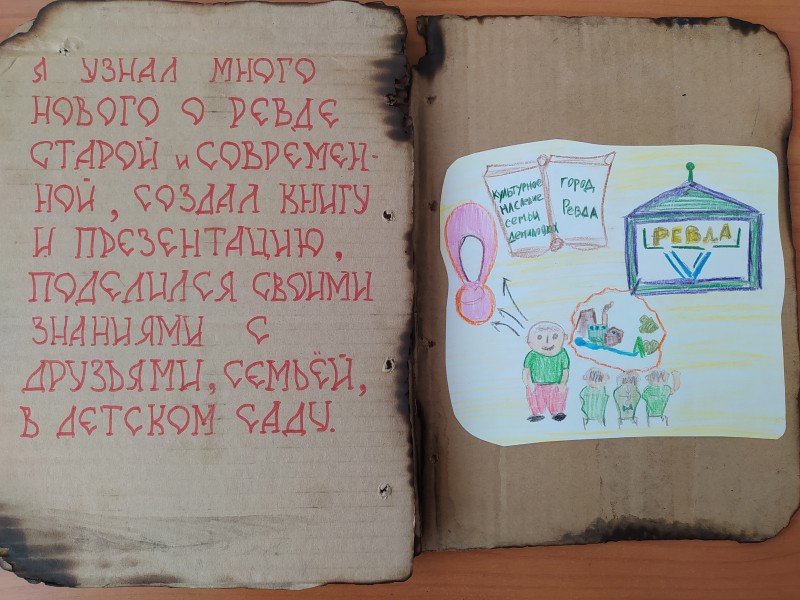 Я УЗНАЛ МНОГО
НОВОГО О РЕВДЕ
СТАРОЙ И СОВРЕМЕН-
НОЙ, СОЗДАЛ КНИГУ
И ПРЕЗЕНТАЦИЮ,
ПОДЕЛИЛСЯ СВОИМИ
ЗНАНИЯМИ С
ДРУЗЬЯМИ, СЕМЬЁЙ,
В ДЕТСКОМ САДУ.
КУЛЬТУРНОЕ
НАСЛЕДИЕ
СЕМЬИ
ДЕМИДОВЫХ
ГОРОД
РЕВДА
РЕВДА